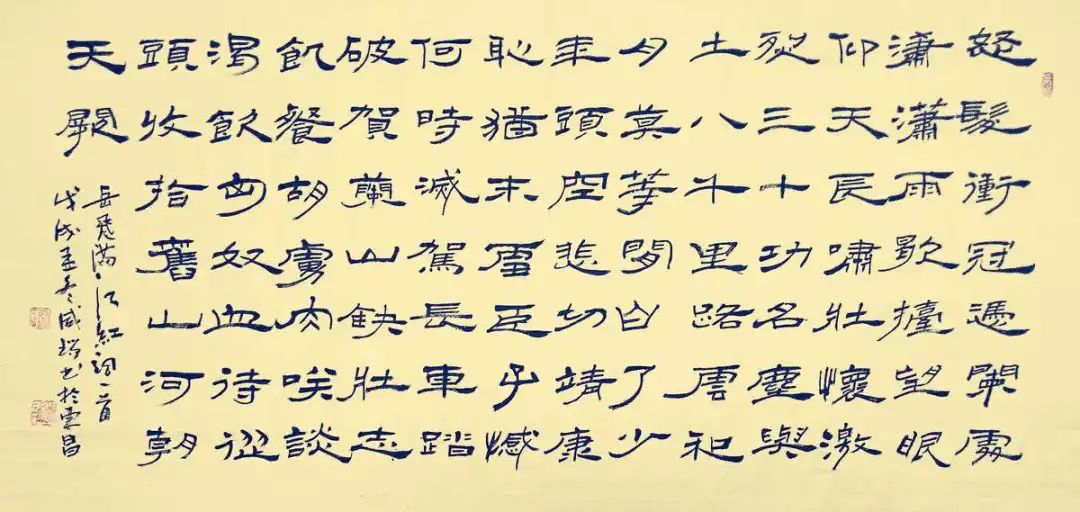 怒髮衝冠憑闌處
瀟瀟雨歇擡望眼
仰天長嘯壯懷激
烈三十功名塵與
土八千里路雲和
月莫等閒白了少
年頭空悲切靖康
恥猶未雪臣子憾
何時滅駕長車踏
破賀蘭山缺壯志
飢餐胡虜肉笑談
渴飲匈奴血待從
頭收拾舊山河朝
天闕
岳飛滿江紅詞一首
戊戌孟冬咸书於昌